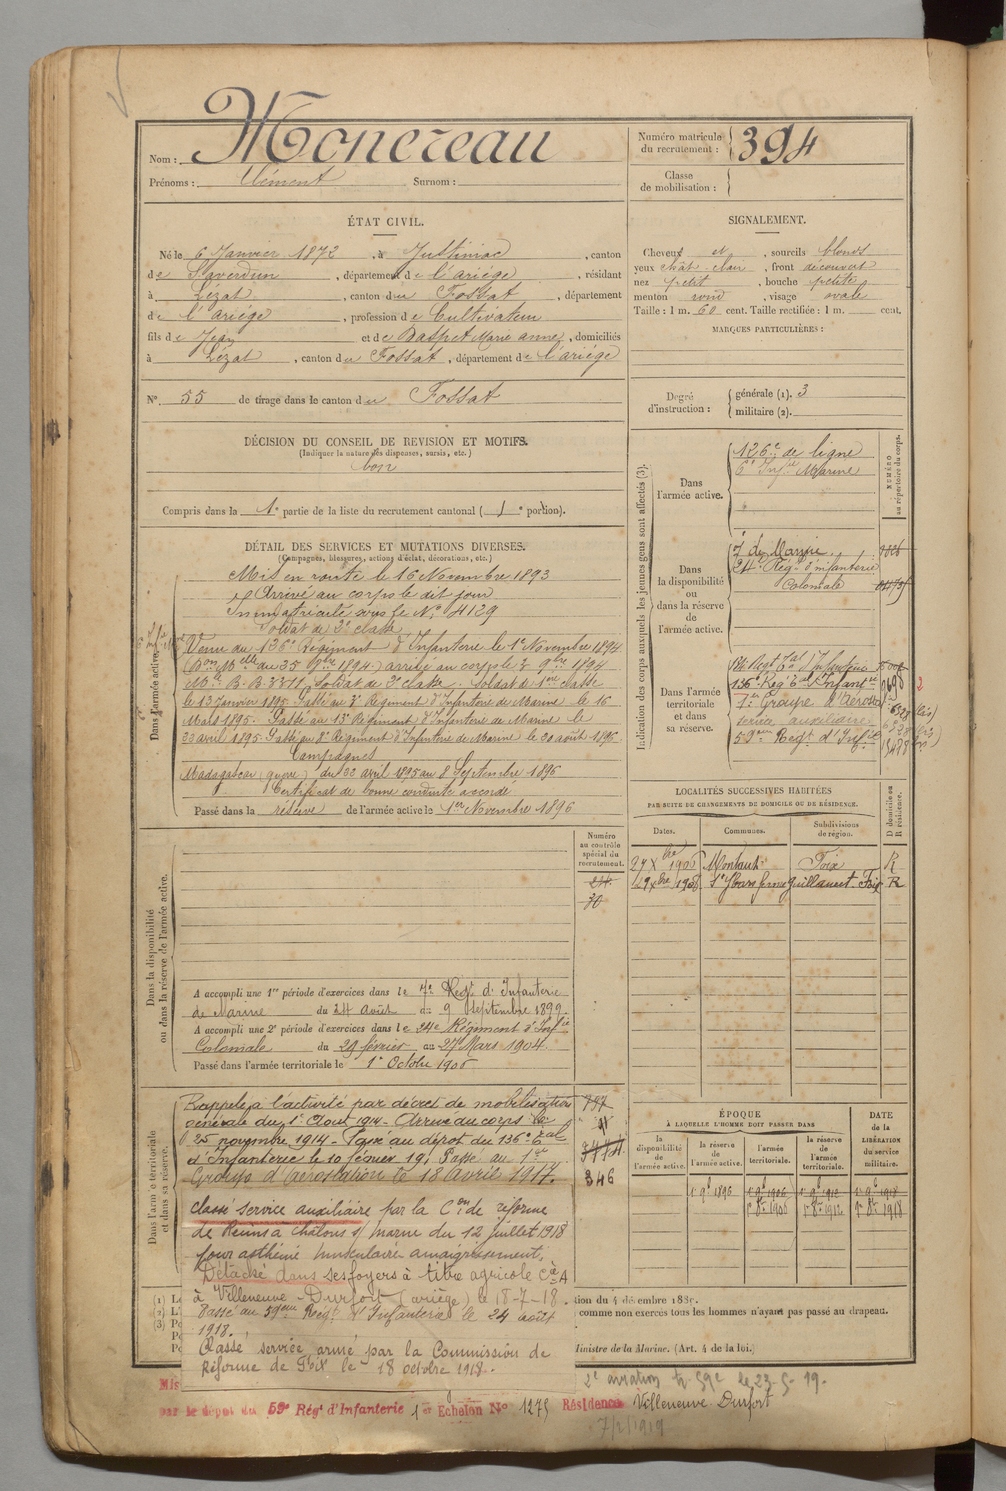 Nom : Moncreau
Prénoms : Clément Surnom :
Numéro matricule du recrutement : 394
Classe de mobilisation :
ÉTAT CIVIL.
Né le 6 Janvier 1872, à Justiniac, canton
de Saverdun, département de l'ariège, résidant
à Lézat, canton du Fossat, département
de l'ariège, profession de Cultivateur
fils de Jean et de Baspet Marie anne, domiciliés
à Lézat, canton du Fossat, département de l'ariège
N° 55 de tirage dans le canton du Fossat
SIGNALEMENT.
Cheveux et , sourcils blonds
yeux chât. clair, front découvert
nez petit, bouche petite
menton rond, visage ovale
Taille : 1 m. 60 cent. Taille rectifiée : 1 m. cent.
MARQUES PARTICULIÈRES :
Degré d'instruction : générale (1). 3
militaire (2).
DÉCISION DU CONSEIL DE REVISION ET MOTIFS.
(Indiquer la nature des dispenses, sursis, etc.)
bon
Compris dans la 1e partie de la liste du recrutement cantonal ( 1 e portion).
DÉTAIL DES SERVICES ET MUTATIONS DIVERSES.
(Campagnes, blessures, actions d'éclat, décorations, etc.)
Dans l'armée active.
Mis en route le 16 Novembre 1893
Arrivé au corps le dit jour
Immatriculé sous le N° 4129
Soldat de 2e classe
Venu au 136e Régiment d'Infanterie le 1er Novembre 1894
arrivé au corps le 9bre 1894
Soldat de 2e classe. Soldat de 1ere classe
le 13 Janvier 1895. Passé au 3e Régiment d'Infanterie de Marine le 16
Mars 1895. Passé au 13e Régiment d'Infanterie de Marine le
22 avril 1895. Passé au 8e Régiment d'Infanterie de Marine le 20 août 1896
Campagnes
Madagascar (guerre) du 22 avril 1895 au 8 Septembre 1896
Certificat de bonne conduite accordé
Passé dans la réserve de l'armée active le 1er Novembre 1896
Indication des corps auxquels les jeunes gens sont affectés (3).
NUMÉRO au répertoire du corps.
Dans l'armée active.
126e de ligne
6e Infie Marine
Dans la disponibilité ou dans la réserve de l'armée active.
7 de Marine
24e Régt d'infanterie
Coloniale
Dans l'armée territoriale et dans sa réserve.
136e Régt Eal d'Infantie
1er Groupe d'Aérost
service auxiliaire
59eme Régt d'Infie
LOCALITÉS SUCCESSIVES HABITÉES
PAR SUITE DE CHANGEMENTS DE DOMICILE OU DE RÉSIDENCE.
Dates. Communes. Subdivisions de région. D domicile ou R résidence.
27 Xbre 1906 Montaut Foix R
29 Xbre 1908 St Ybars ferme Guillaumet Foix R
Numéro au contrôle spécial du recrutement.
Dans la disponibilité ou dans la réserve de l'armée active.
A accompli une 1re période d'exercices dans le 7e Régt d'Infanterie
de Marine du 24 août au 9 septembre 1899.
A accompli une 2e période d'exercices dans le 24e Régiment d'Infie
Coloniale du 29 février au 27 Mars 1904.
Passé dans l'armée territoriale le 1er Octobre 1906
Dans l'armée territoriale et dans sa réserve.
Rappelé à l'activité par décret de mobilisation
générale du 1er Aout 1914. Arrivé au corps le
25 novembre 1914. Passé au dépôt du 136e Eal
d'Infanterie le 10 février 191 Passé au 1er
Groupe d'aérostation le 18 Avril 1917.
346
classé service auxiliaire par la Con de réforme
de Reims à Châlons s/ marne du 12 juillet 1918
pour asthénie musculaire amaigrissement.
Détaché dans ses foyers à titre agricole Cie A
à Villeneuve-Durfort (ariège) le 18-7-18.
Passé au 59eme Régt d'Infanterie le 24 août
1918.
Classé service armé par la Commission de
Réforme de Foix le 18 octobre 1918.
ÉPOQUE
À LAQUELLE L'HOMME DOIT PASSER DANS
la disponibilité de l'armée active. la réserve de l'armée active. l'armée territoriale. la réserve de l'armée territoriale.
DATE de la LIBÉRATION du service militaire.
1er 9bre 1896 1er 9bre 1906 1er 9bre 1912 1er 9bre 1918
1er 8bre 1906 1er 8bre 1912 1er 8bre 1918
tion du 4 décembre 1835.
comme non exercés tous les hommes n'ayant pas passé au drapeau.
Ministre de la Marine. (Art. 4 de la loi.)
2e aviation
le 23-5-19.
Mis
par le dépôt du 59e Régt d'Infanterie 1er Échelon N° 1275 Résidence Villeneuve Durfort